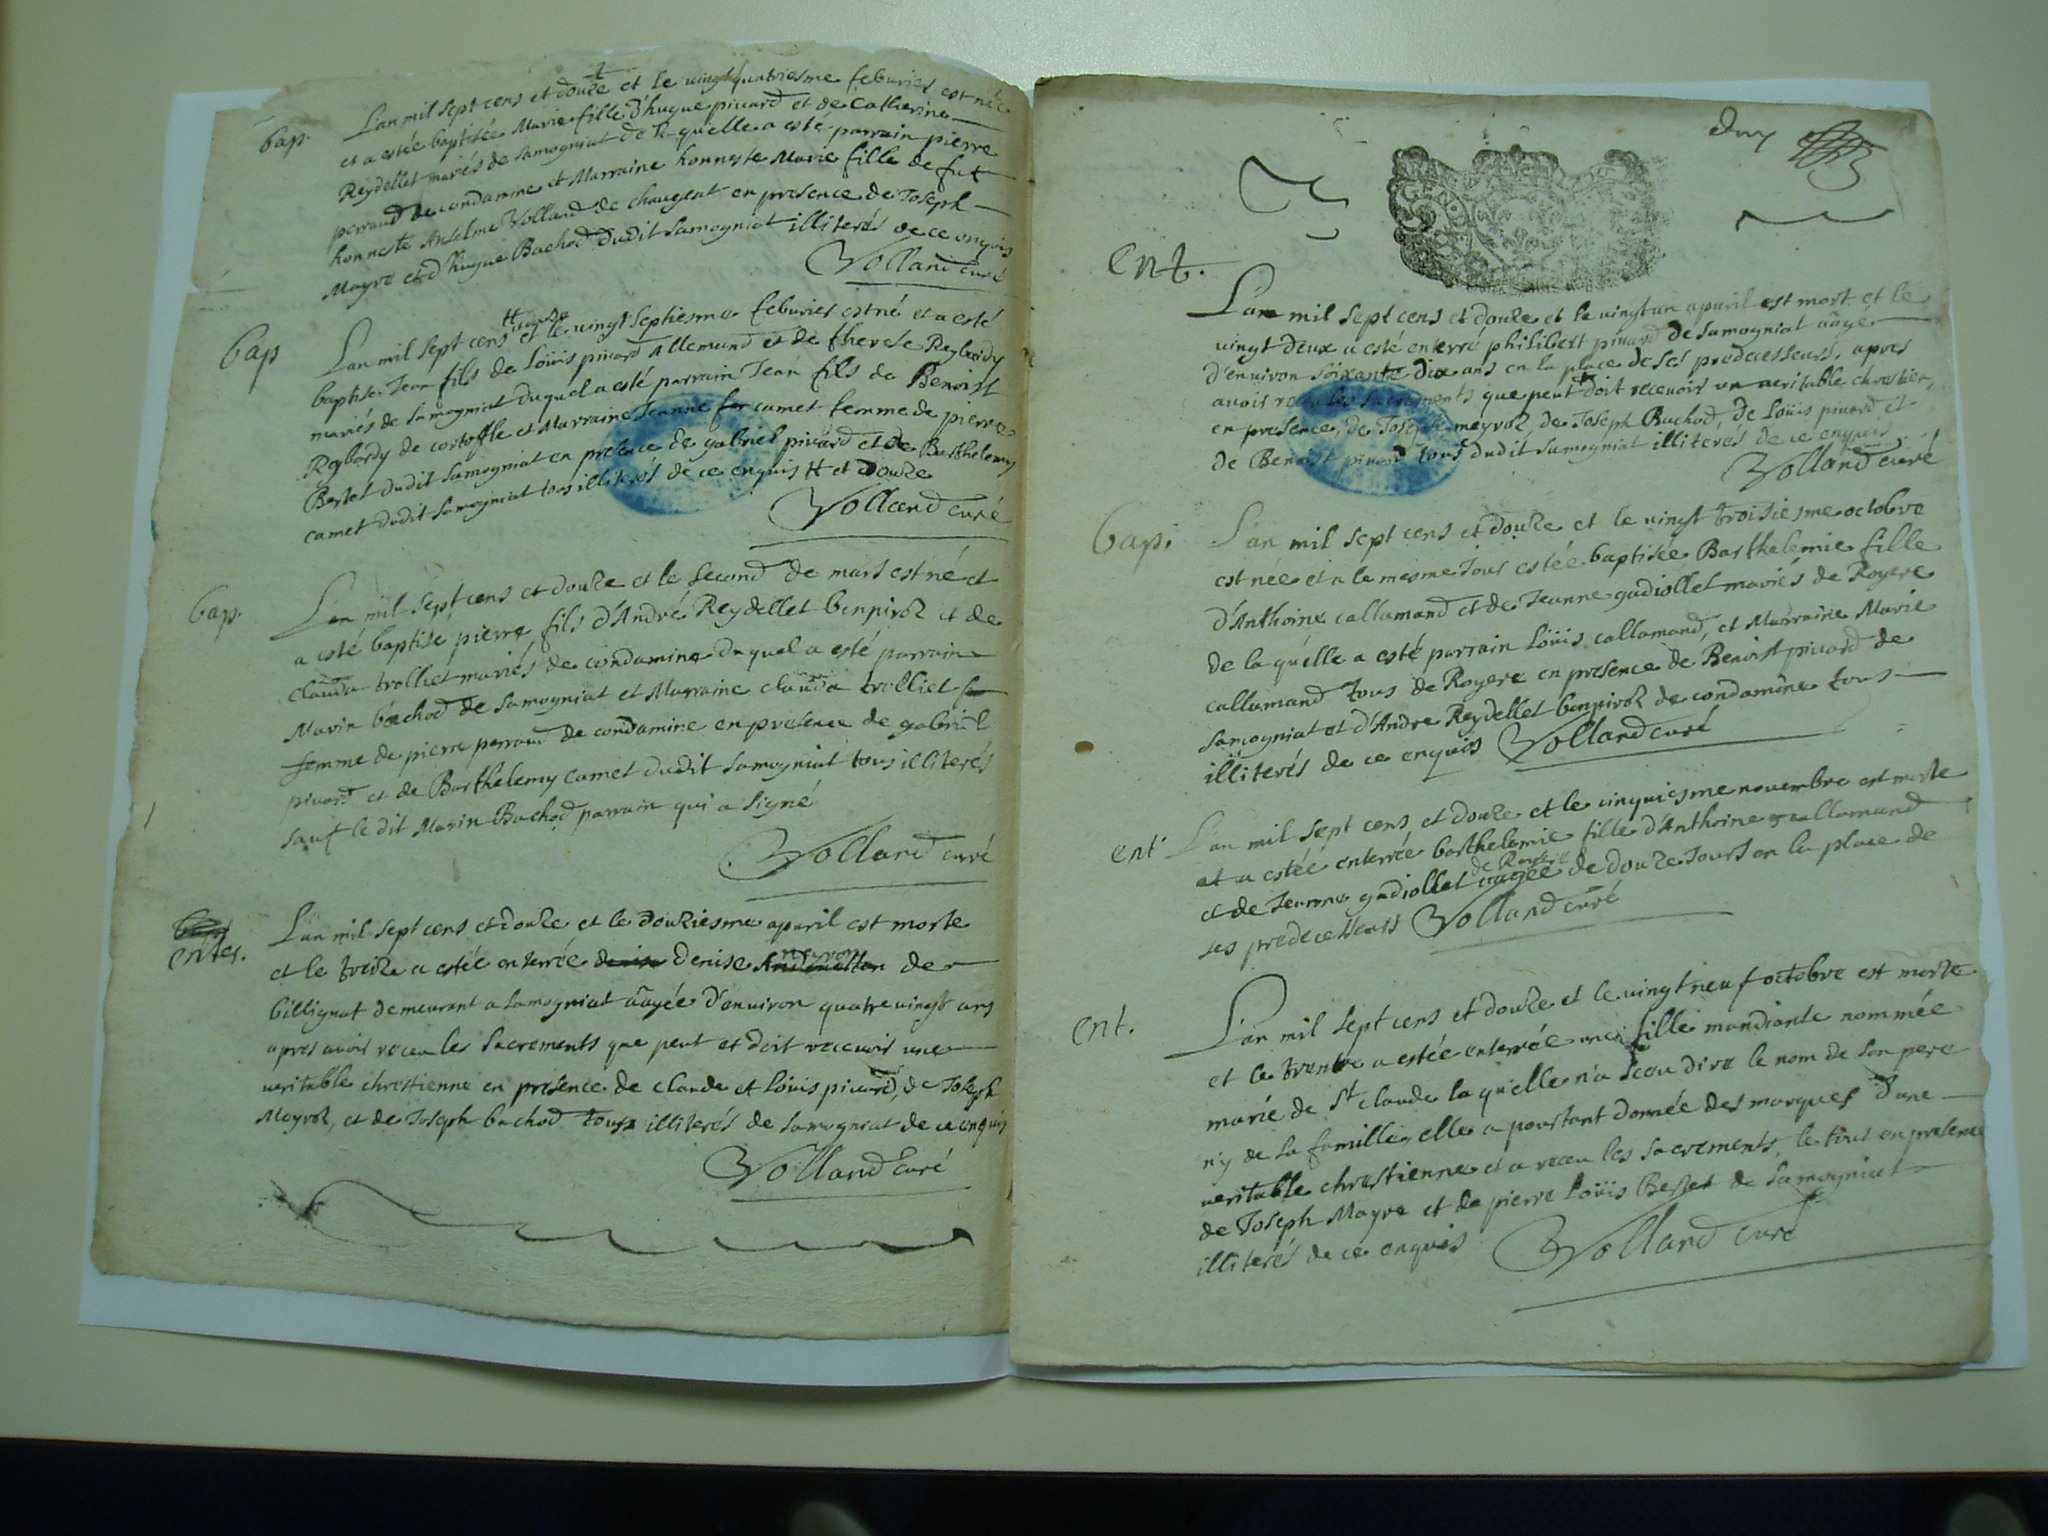 bap.
L'an mil sept cens et douze et le vingtquatriesme feburier est née
et a estée baptisée Marie fille d'hugue pivard et de Catherine
Reydellet mariés de samogniat de laquelle a esté parrain pierre
perraud de condamine et Marraine honneste Marie fille de fut
honneste Anselme Volland de chougeat en presence de Joseph
Mayre et d'hugue Bachod dudit samogniat illiterés de ce enquis
Volland curé
bap
L'an mil sept cens et le vingt septiesme feburier est né et a esté
baptisé Jean fils de Loüis pivard Allemand et de therese Reybordy
mariés de samogniat duquel a esté parrain Jean fils de Benoist
Reybordy de cortoffle et Marraine Jeanne camet femme de pierre
Bertet dudit samogniat en presence de gabriel pivard et de Barthelemy
camet dudit samogniat tous illiterés de ce enquis H et douze
Volland curé
bap.
L'an mil sept cens et douze et le second de mars est né et
a esté baptisé pierre fils d'André Reydellet benpiroz et de
clauda trolliet mariés de condamine duquel a esté parrain
Marin bachod de samogniat et Marraine clauda trolliet
femme de pierre perraud de condamine en presence de gabriel
pivard et de Barthelemy camet dudit samogniat tous illiterés
sauf le dit Marin Bachod parrain qui a signé
Volland curé
enter.
L'an mil sept cens et douze et le douziesme apuril est morte
et le treize a estée enterrée denise de
billignat demeurant a samogniat aagée d'environ quatre vingt ans
apres avoir receu les sacrements que peut et doit recevoir une
veritable chrestienne en presence de claude et loüis pivard, de Joseph
Mayroz, et de Joseph bachod tous illiterés de samogniat de ce enquis
Volland curé
ent.
L'an mil sept cens et douze et le vingtun apuril est mort et le
vingt deux a esté enterré philibert pivard de samogniat aagé
d'environ soixante dix ans en la place de ses predecesseurs, apres
avoir receu les sacrements que peut doit recevoir un veritable chrestien,
en presence, de Joseph meyroz, de Joseph Bachod, de Loüis pivard et
de Benoist pivard tous dudit samogniat illiterés de ce enquis
Volland curé
bap.
L'an mil sept cens et douze et le vingt troisiesme octobre
est née et a le mesme Jour estée baptisée Barthelemie fille
d'Anthoine callamand et de Jeanne gadiollet mariés de Royere
de laquelle a esté parrain Loüis callamand, et Marraine Marie
callamand tous de Royere en presence de Benoist pivard de
samogniat et d'Andre Reydellet benpiroz de condamine tous
illiterés de ce enquis Volland curé
ent
L'an mil sept cens et douze et le cinquiesme novembre est morte
et a estée enterrée barthelemie fille d'Anthoine callamand
de Royere
et de Jeanne gadiollet aagée de douze Jours en la place de
ses predecesseurs Volland curé
ent.
L'an mil sept cens et douze et le vingtneuf octobre est morte
et le trente a estée enterrée une fille mandiante nommée
marie de St claude laquelle n'a sceu dire le nom de son pere
n'y de sa famille, elle a pourtant donnée des marques d'une
veritable chrestienne et a receu les sacrements, le tous en presence
de Joseph Mayre et de pierre Loüis Bertet de samogniat
illiterés de ce enquis Volland curé